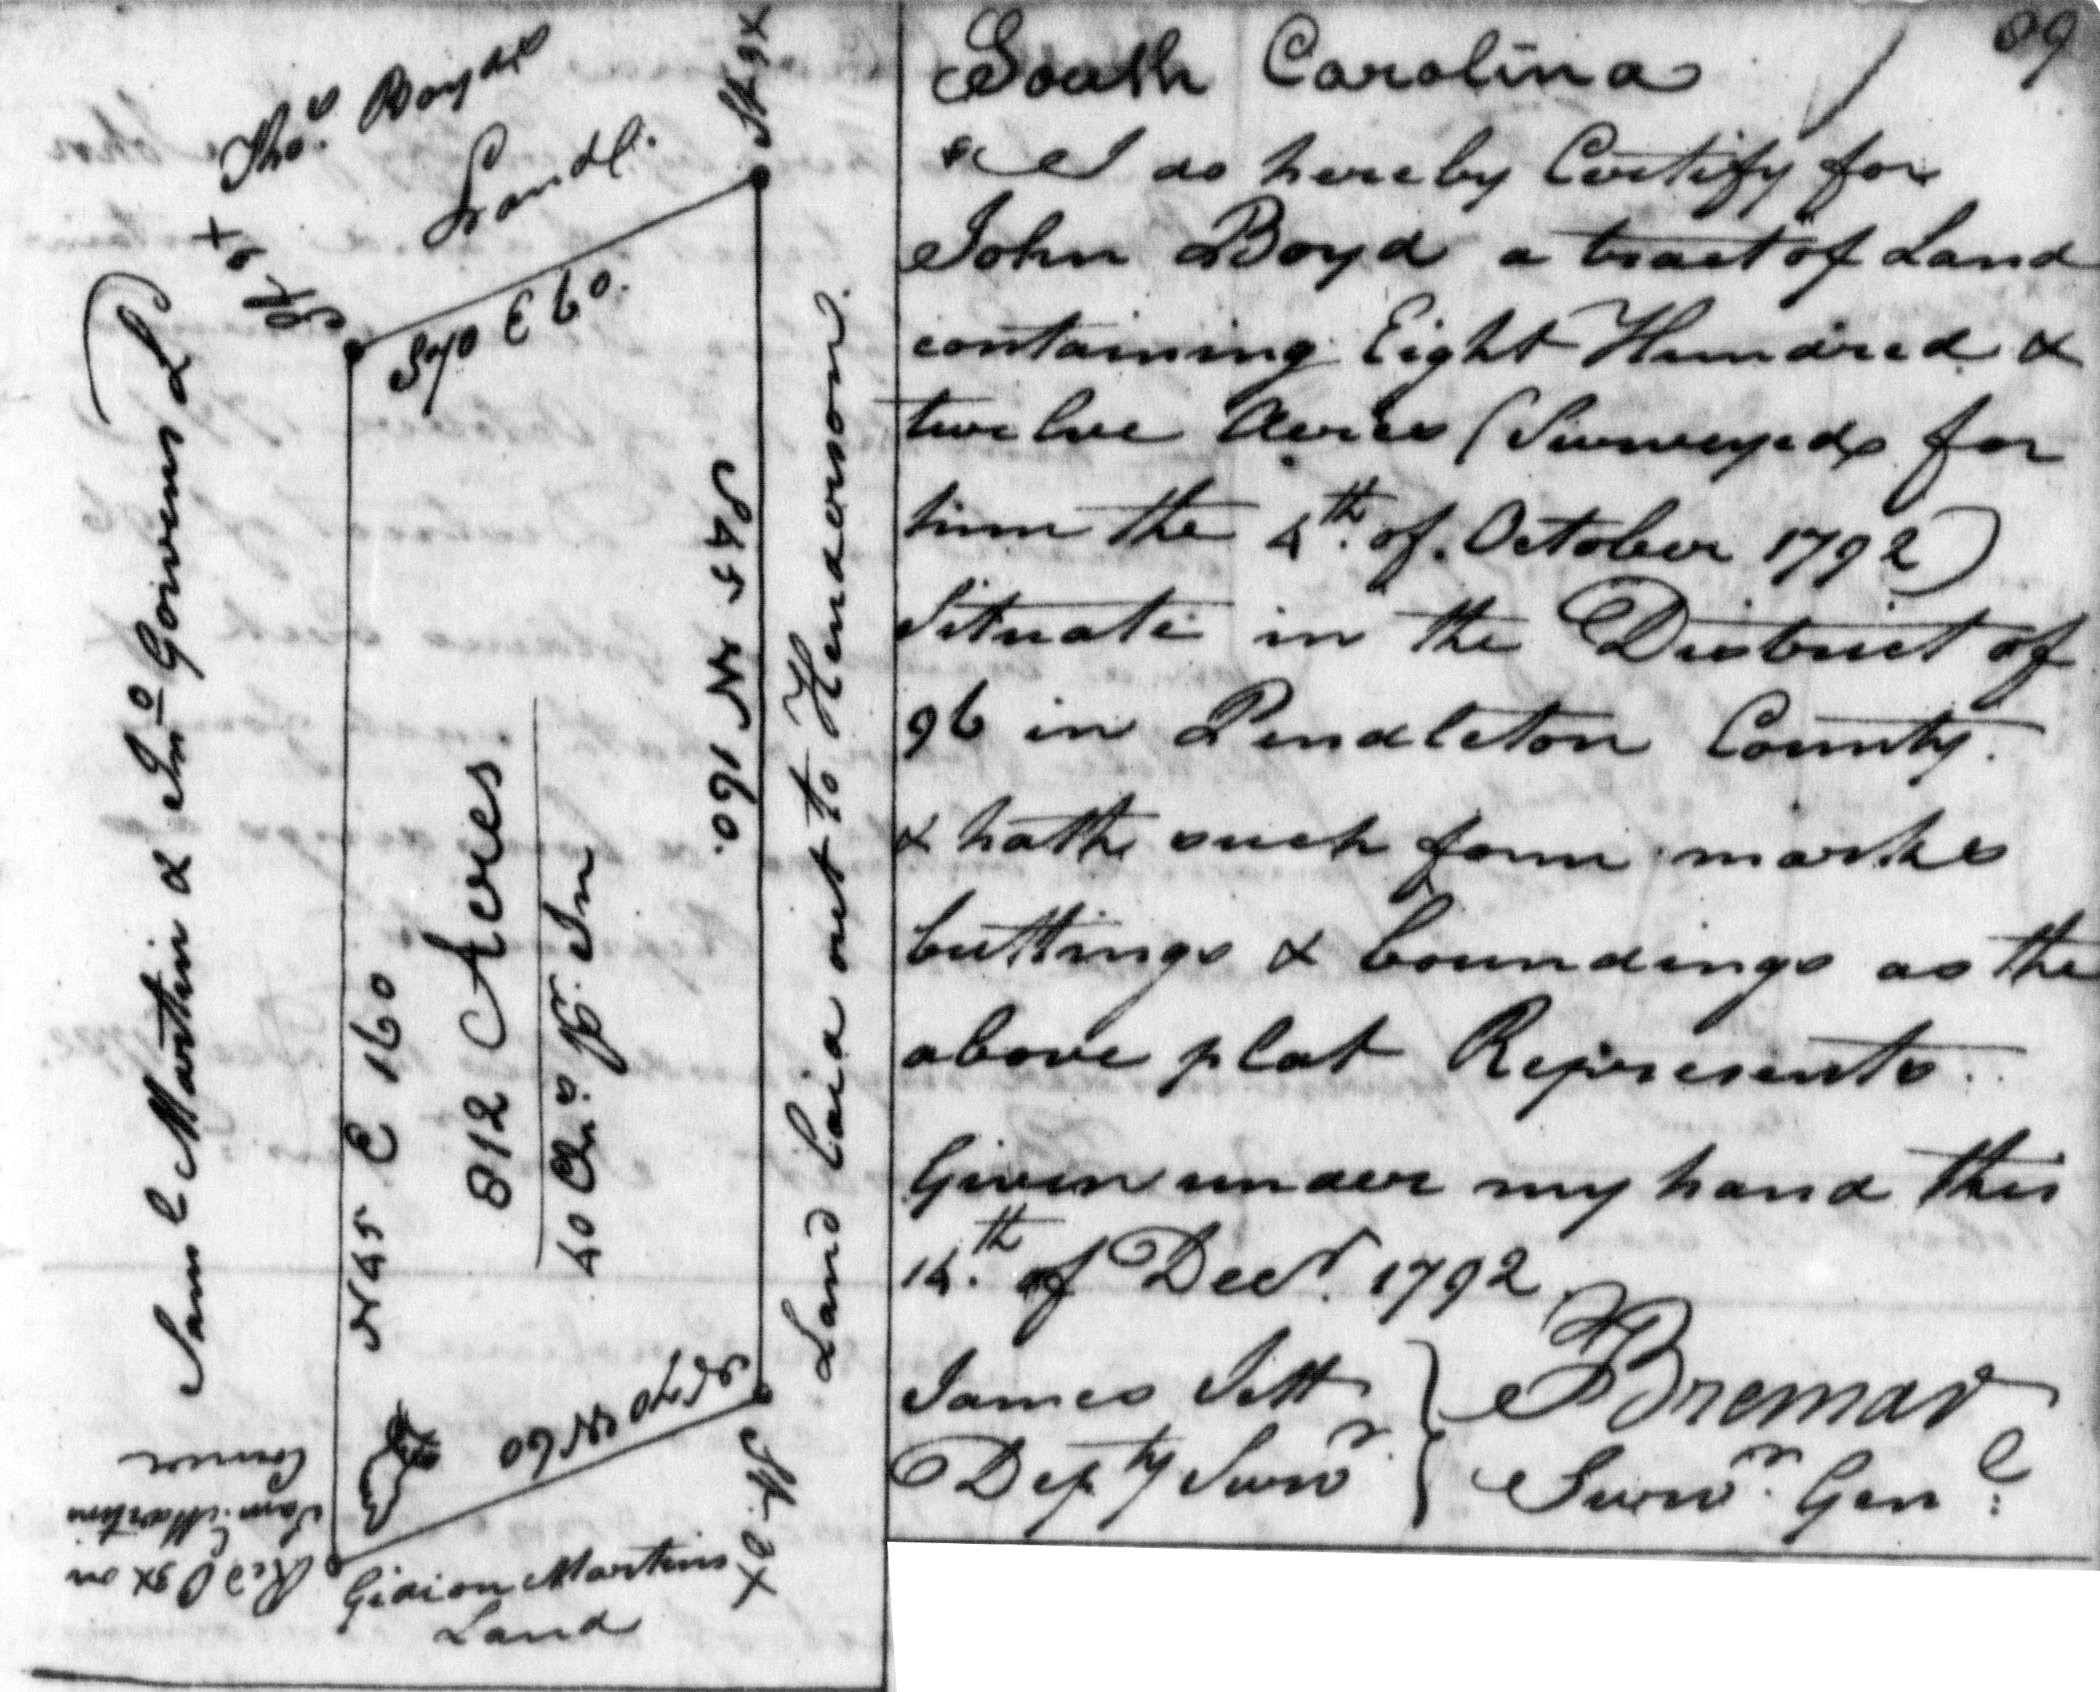 89
South Carolina
I do hereby Certify for
John Boyd a tract of Land
containing Eight Hundred &
twelve Acres (Surveyed for
him the 4th. of. October 1792)
Situate in the District of
96 in Pendleton County.
& hath such form marks
buttings & boundings as the
above plat Represents.
Given under my hand this
14.th of Decr. 1792
James
Depty Survr
Bremar
Survr. Genl.
Thos. Boyds
Land.
St 9x
St 9x
S70 E 60.
Saml Martin & Jno Gowens Ld
N45 E 160
812 Acres
40 Chs. pr. In
S45 W 160.
Land laid out to Henderson.
S70 W 60
St. 9x
Gideon Martins
Land
Red O 9x on
Sam. Martins
Corner